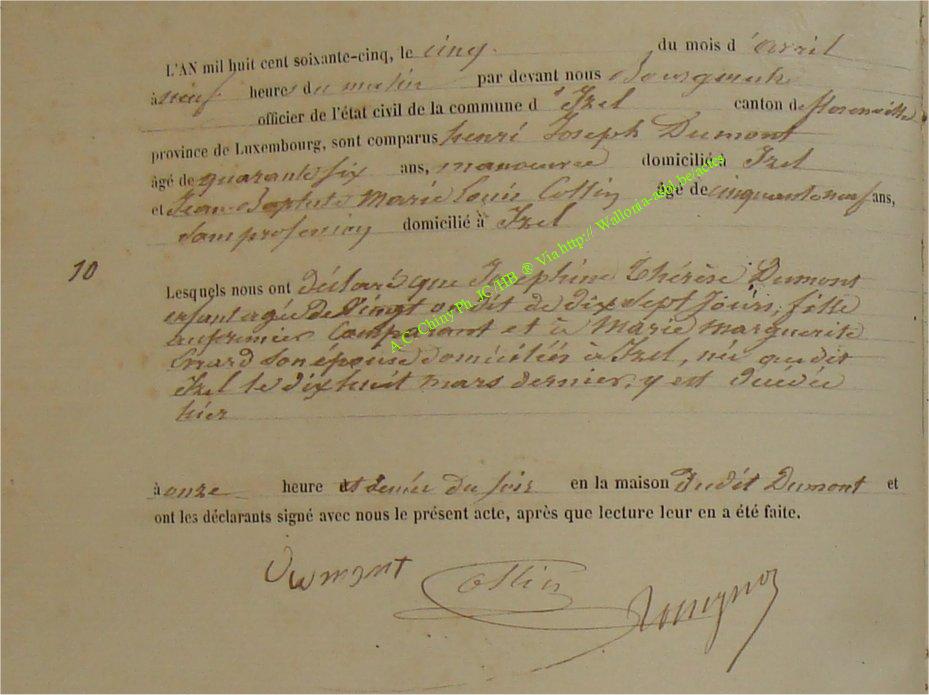 L'AN mil huit cent soixante-cinq, le cinq du mois d'avril
à neuf heures du matin par devant nous Bourgmestre
officier de l'état civil de la commune d'Izel canton de florenville
province de Luxembourg, sont comparus henri Joseph Dumont
âgé de quarante six ans, manoeuvre domicilié à Izel
et Jean Baptiste Marie Louis Collin âgé de cinquante neuf ans,
sans profession domicilié à Izel
10
Lesquels nous ont déclaré que Joséphine Thérèse Dumont
enfant agée de dix sept Jours, fille
au premier Comparant et à Marie Marguerite
son épouse domiciliés à Izel, née audit
Izel le dix huit mars dernier, y est décédée
hier
à onze heure du soir en la maison dudit Dumont et
ont les déclarants signé avec nous le présent acte, après que lecture leur en a été faite.
Dumont Collin
A.C. Chiny Ph. JC/HB ® Via http:// Wallonia-asbl.be/actes